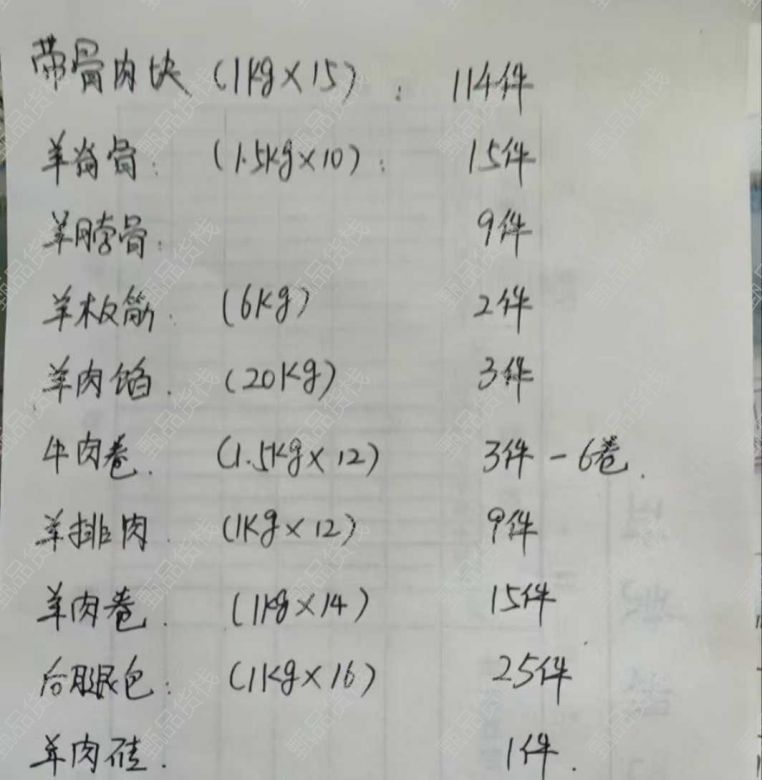 带骨肉块 (1kg×15): 114件
羊脊骨: (1.5kg×10): 15件
羊脖骨: 9件
羊板筋: (6kg) 2件
羊肉馅. (20kg) 3件
牛肉卷. (1.5kg×12) 3件-6卷.
羊排肉 (1kg×12) 9件
羊肉卷. (1kg×14) 15件
后腿包: (1kg×16) 25件
羊肉. 1件.